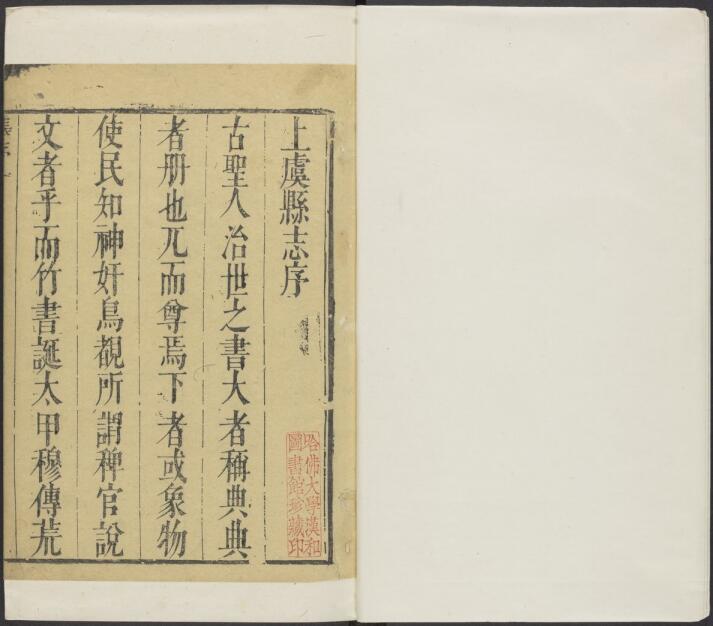 上虞縣志序
古聖人治世之書大者稱典典
者冊也兀而尊焉下者或象物
使民知神奸鳥覩所謂稗官說
文者乎而竹書誕太甲穆傳荒
哈佛大學漢和
圖書館珍藏印